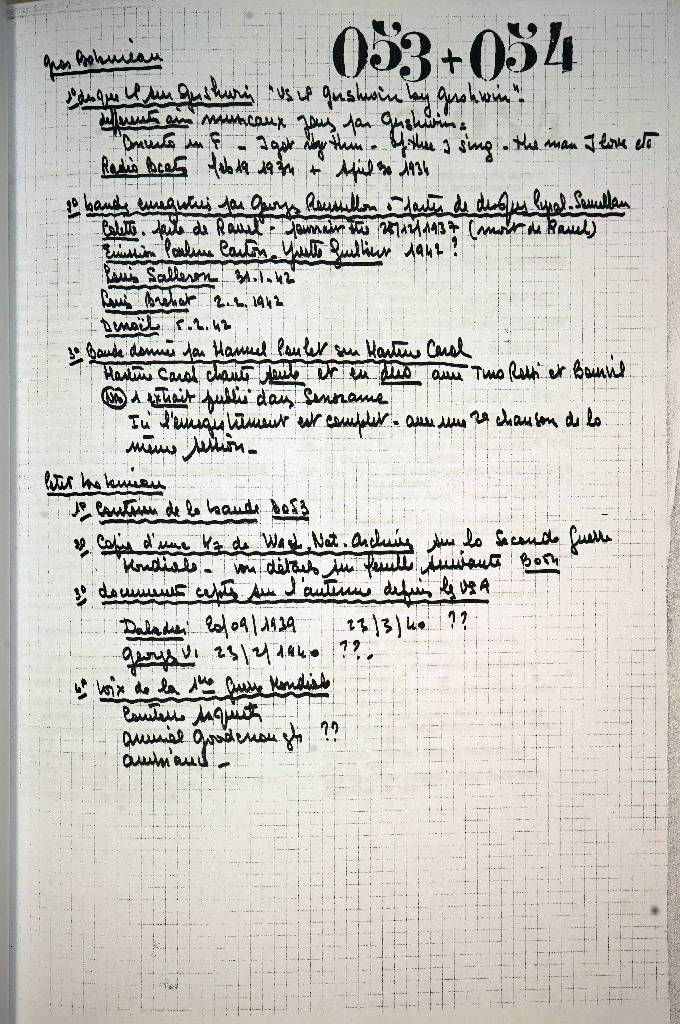 053 + 054
Gros Bohnieau
1° disque LP sur Gershwin "US LP Gershwin by Gershwin".
différents airs musicaux joués par Gershwin =
Concerto in F - I got rythm - Of thee I sing - the man I love etc
Radio Bcats feb 19 1934 + April 30 1934
2° bande enregistrée par Georges Roussillon à partir de disques
Colette. de Ravel - 28/12/1937 (mort de Ravel)
Emission Pauline Carton, Yvette Guilbert 1942 ?
Louis Salleron 31.1.42
Louis Brehat 2.2.1942
Denoël 5.2.42
3° Bande donnée par Manuel Poulet sur Martine Carol
Martine Carol chante seule et en duo avec Tino Rossi et Bourvil
1 extrait publié dans Sonorama
Ici l'enregistrement est complet - avec une 2e chanson de la
même session -
Petit
1° Contenu de la bande B053
2° Copie d'une K7 de Wash. Nat. Archives sur la Seconde Guerre
Mondiale - voir détails sur feuille suivante B054
3° documents captés sur l'antenne depuis les USA
Daladier 20/09/1939 23/3/40 ??
Georges VI 23/2/1940 ??
4° Voix de la 1ère Guerre Mondiale
??